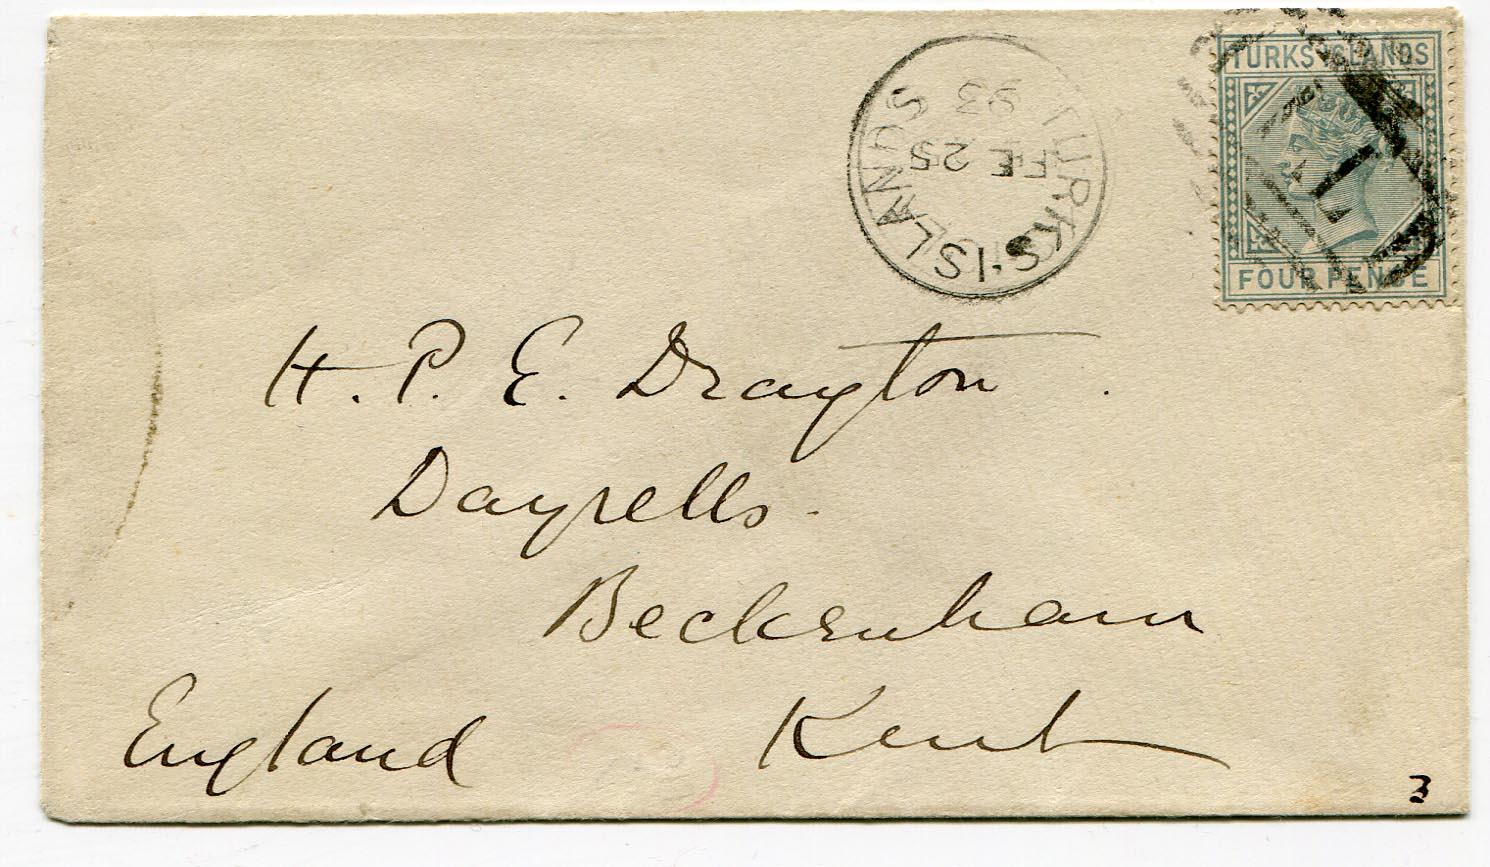 TURKS ISLANDS
T
FOUR PENCE
TURKS·ISLANDS
FE 25
93
H. P. E. Drayton
Dayrells
Beckenham
England Kent
3